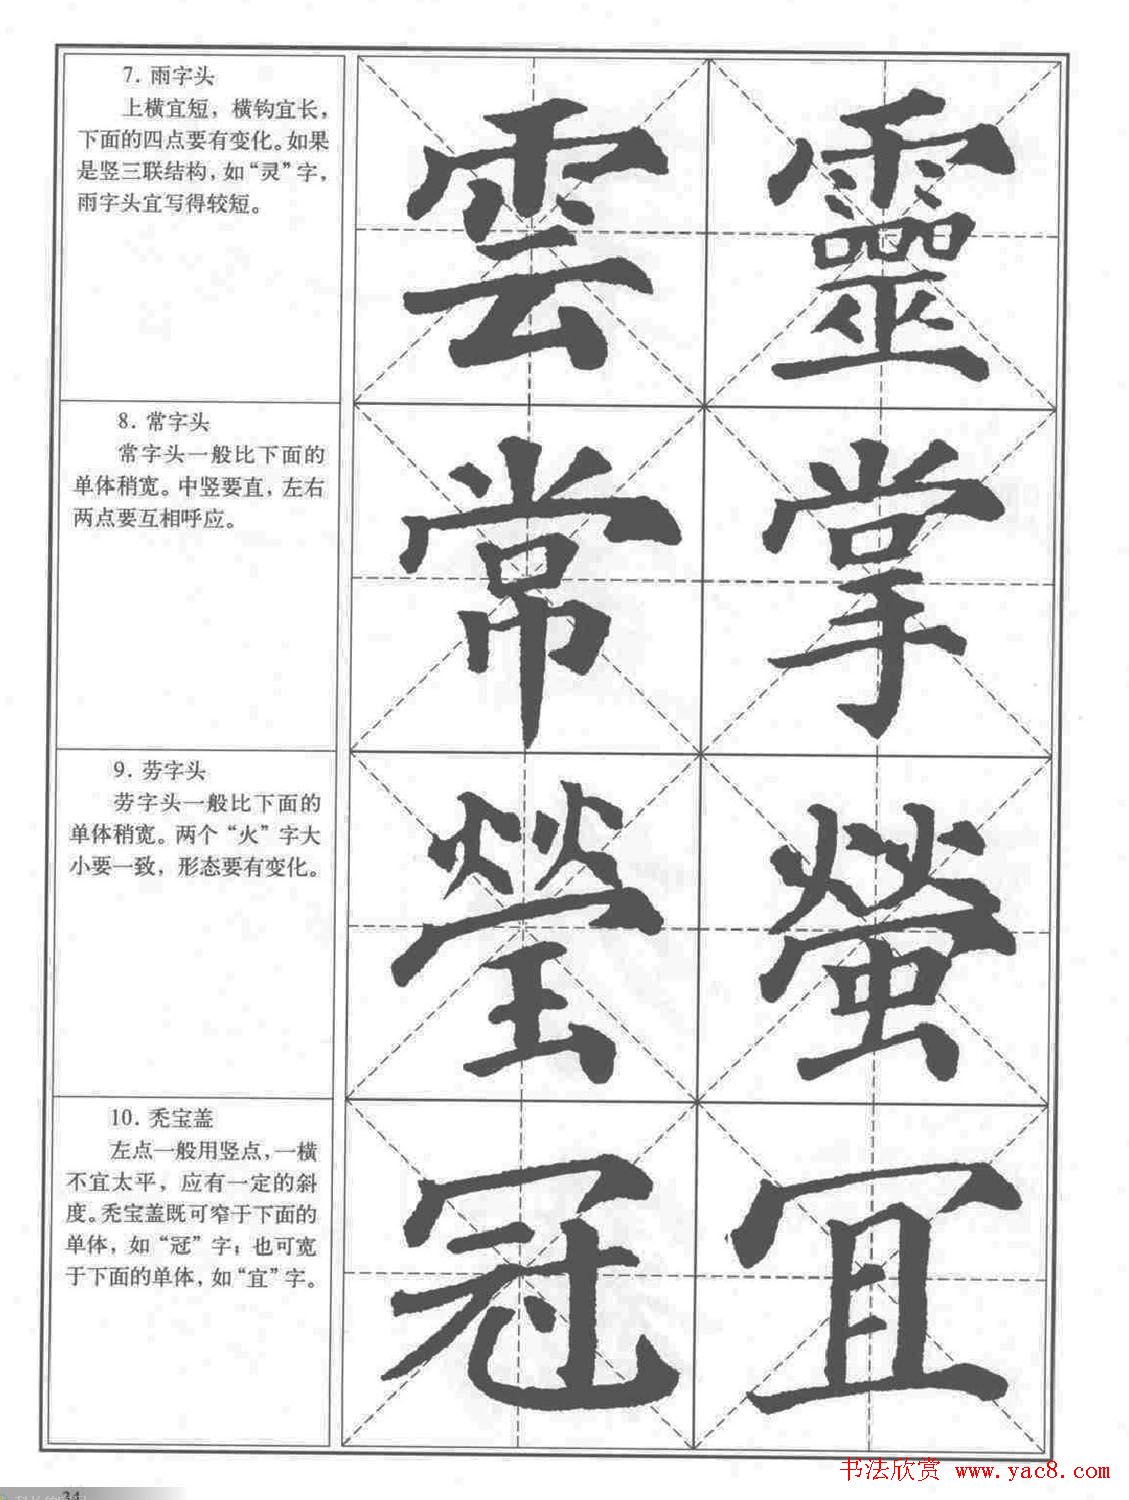 7. 雨字头
上横宜短，横钩宜长，
下面的四点要有变化。如果
是竖三联结构，如“灵”字，
雨字头宜写得较短。
雲 靈
8. 常字头
常字头一般比下面的
单体稍宽。中竖要直，左右
两点要互相呼应。
常 掌
9. 劳字头
劳字头一般比下面的
单体稍宽。两个“火”字大
小要一致，形态要有变化。
瑩 螢
10. 秃宝盖
左点一般用竖点，一横
不宜太平，应有一定的斜
度。秃宝盖既可窄于下面的
单体，如“冠”字；也可宽
于下面的单体，如“宜”字。
冠 冝
书法欣赏 www.yac8.com
34